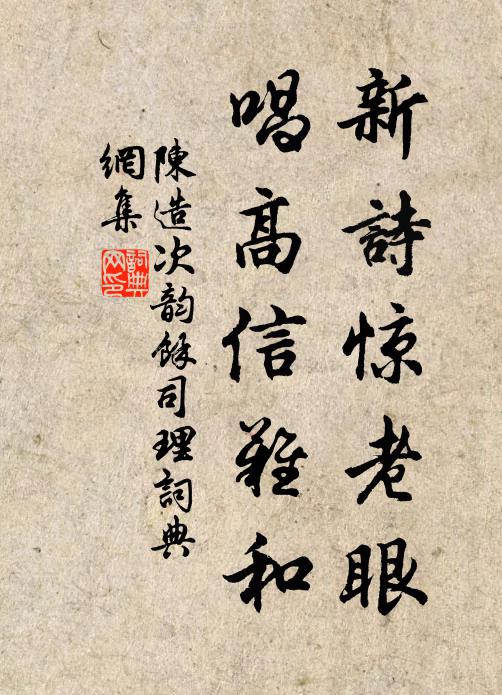 新詩惊老眼
唱高信難和
陳造次韵餘司理詞典
網集
詞典网印